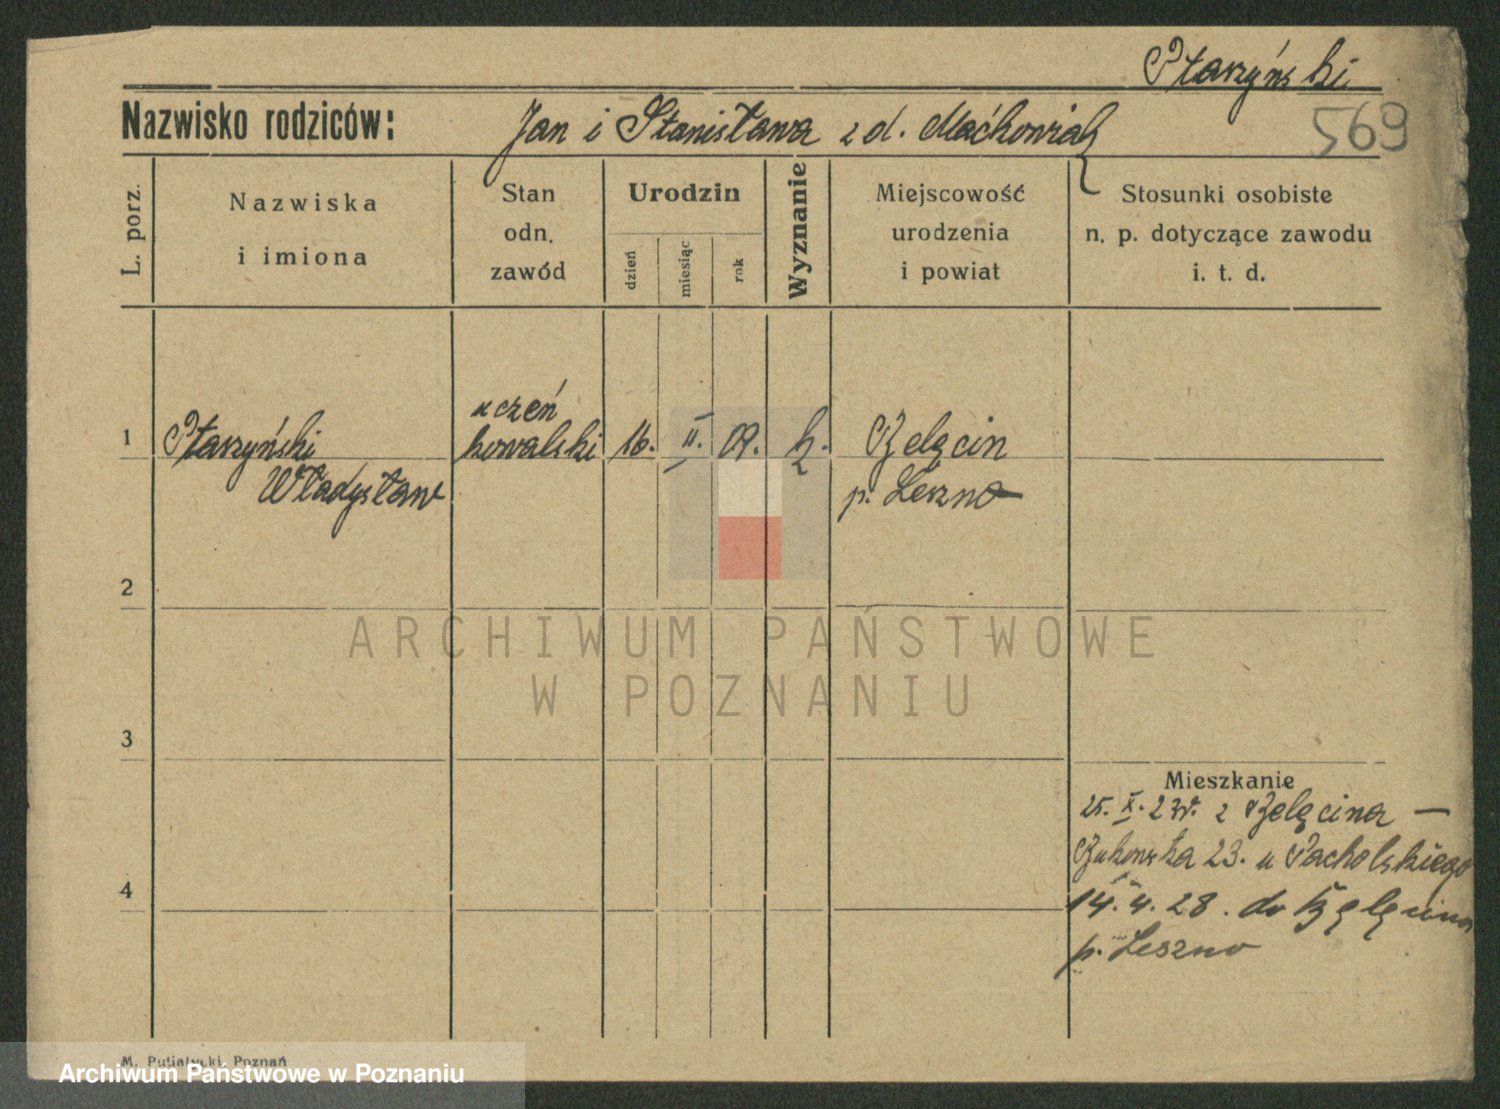 Ptaszyński
Nazwisko rodziców: Jan i Stanisława z d. Maćkowiak
569
L. porz.
Nazwiska
i imiona
Stan
odn.
zawód
Urodzin
dzień
miesiąc
rok
Wyznanie
Miejscowość
urodzenia
i powiat
Stosunki osobiste
n. p. dotyczące zawodu
i. t. d.
1 Ptaszyński
Władysław
uczeń
kowalski
16. II. 09. k.
p. Leszno
2
3
4
Mieszkanie
25. X. 23r. z
23. u Pacholskiego
14. 4. 28. do
p. Leszno
ARCHIWUM PAŃSTWOWE
W POZNANIU
M. Putiatycki, Poznań
Archiwum Państwowe w Poznaniu